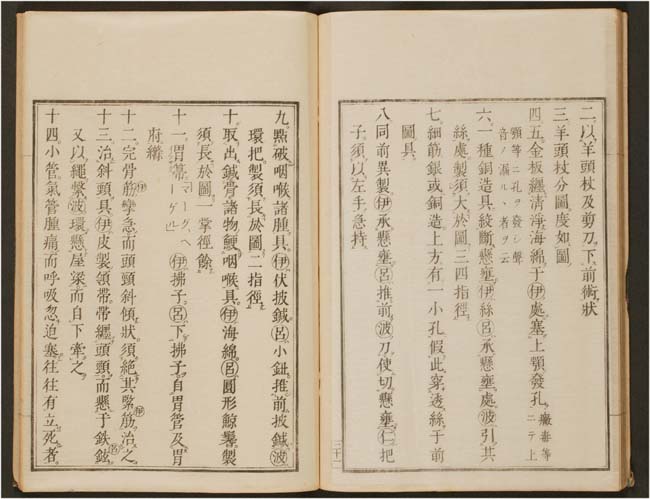 二以羊頭杖及剪刀下前術狀
三羊頭杖分圖度如圖
四五金板纒清淨海綿于㋑處塞上顎發孔 黴毒等ニテ上
顎等ニ孔ヲ發シ聲
音ノ漏ル者ヲ云
六一種銅造具絞斷懸壅㋑絲㋺承懸壅處㋩引共
絲處製須大於圖三四指徑
七細筋銀或銅造上方有一小孔假此穿透絲于前
圖具
八同前異製㋑承懸壅㋺推前㋩刀使切懸壅㋥把
子須以左手急持
九點破咽喉諸腫具㋑伏披鍼㋺小鈕推前披鍼㋩
環把製須長於圖二指徑
十取出鍼骨諸物鯁咽喉具㋑海綿㋺圓形鯨鬚製
須長於圖一掌徑餘
十一胃帚㋑拂子㋺下拂子自胃管及胃
府綫
十二完骨筋攣急而頭頸斜傾狀須絶其緊筋治之
十三治斜頸具㋑皮製領帶帶纒頭頸而懸于鉄鉉
又以繩繫㋩環懸屋梁而自下牽之
十四小管氣管腫痛而呼吸忽迫塞往往有立死者